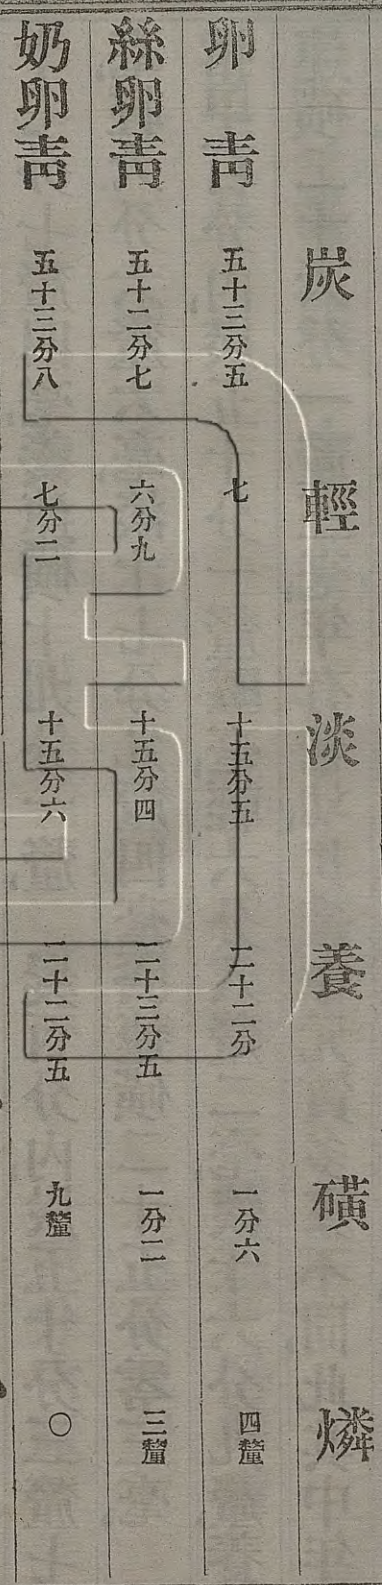 炭 輕 淡 養 磺 燐
卵青 五十三分五 七 十五分五 二十二分 一分六 四釐
絲卵青 五十二分七 六分九 十五分四 二十三分五 一分二 三釐
奶卵青 五十三分八 七分二 十五分六 二十二分五 九釐 〇